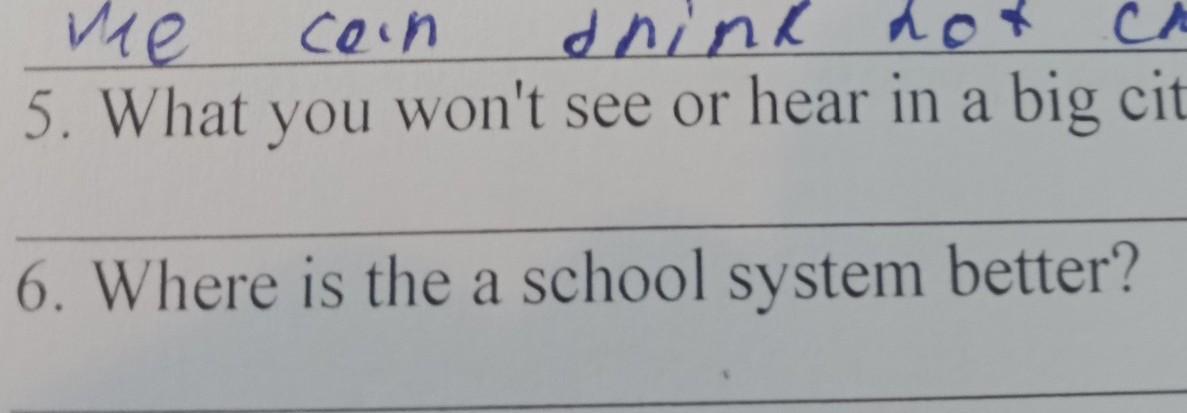 We can drink hot ch
5. What you won't see or hear in a big cit
6. Where is the a school system better?